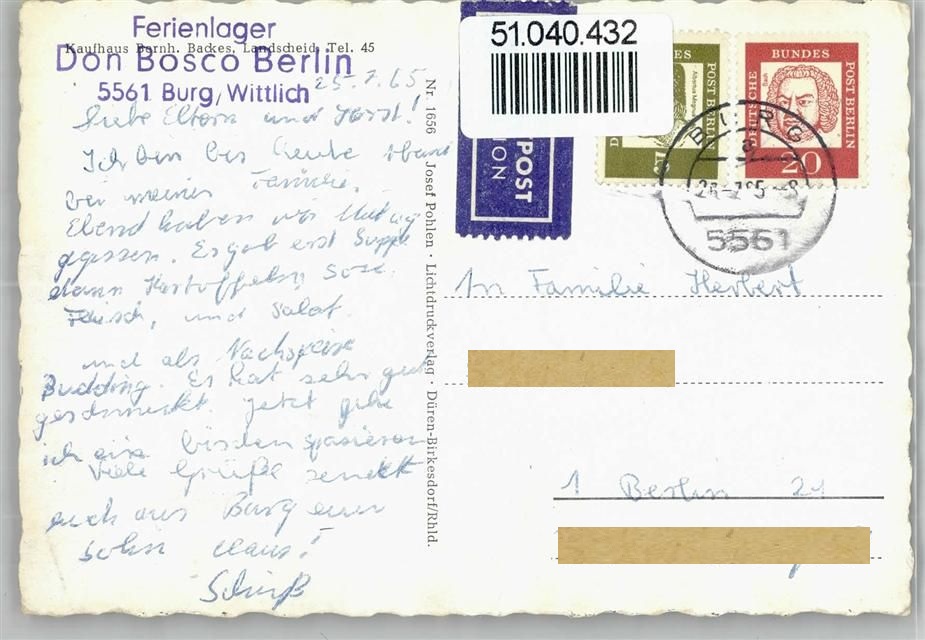 Ferienlager
Kaufhaus Bernh. Backes, Landscheid, Tel. 45
Don Bosco Berlin
5561 Burg/Wittlich
25.7.65
Liebe Eltern und Horst!
Ich bin bis heute Abend
bei meiner Familie.
Ebend haben wir Mittag
gegessen. Es gab erst Suppe
dann Kartoffeln, Sose,
Fleisch, und Salat.
und als Nachspeise
Pudding. Es hat sehr gut
geschmeckt. Jetzt gehe
ich ein bischen spazieren
Viele Grüße sendet
euch aus Burg euer
Sohn Claus!
Nr. 1656 Josef Pohlen · Lichtdruckverlag · Düren-Birkesdorf/Rhld.
51.040.432
POST
ION
ES
POST BERLIN
Albertus Magnus
D
15
BUNDES
POST BERLIN
DEUTSCHE
Bach
20
BURG
a
26.-7.65.-8
5561
An Familie Herbert
1 Berlin 21